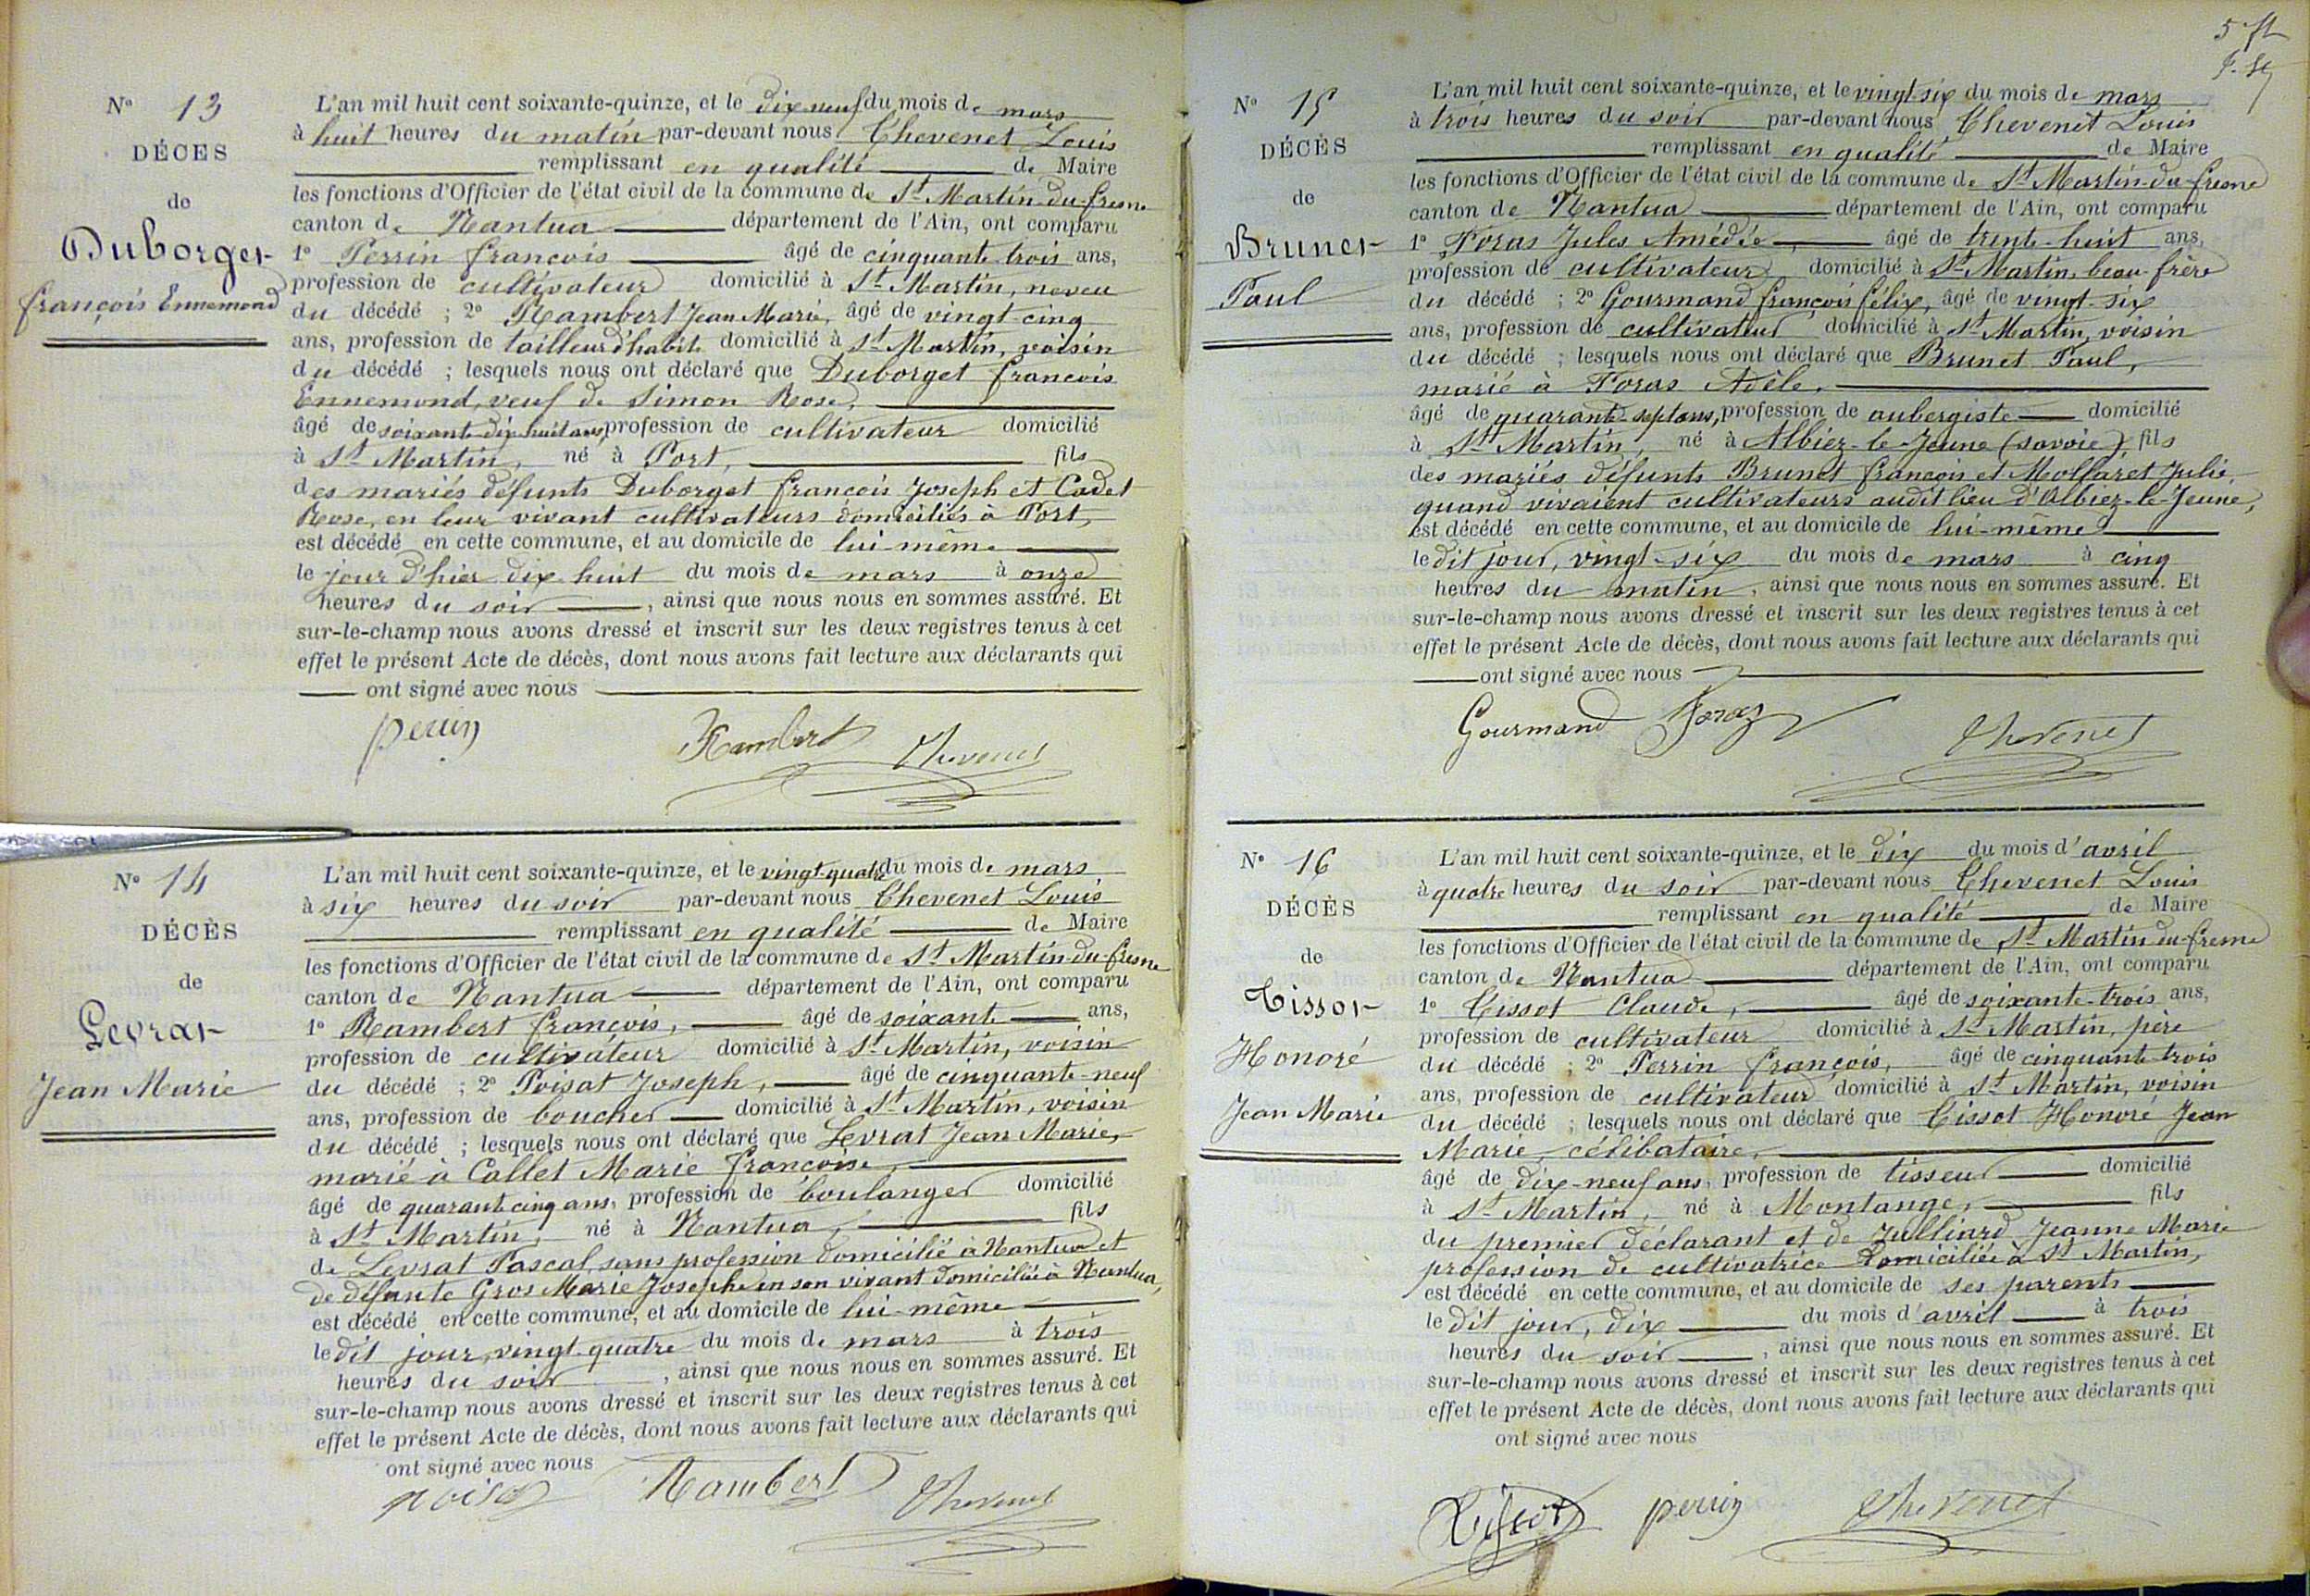 N° 13
DÉCÈS
de
Duborget
François Ennemond
L'an mil huit cent soixante-quinze, et le dix neuf du mois de mars
à huit heures du matin par-devant nous Chevenet Louis
remplissant en qualité de Maire
les fonctions d'Officier de l'état civil de la commune de St Martin-du-fresne
canton de Nantua département de l'Ain, ont comparu
1° Perrin françois âgé de cinquante trois ans,
profession de cultivateur domicilié à St Martin, neveu
du décédé ; 2° Rambert Jean Marie, âgé de vingt-cinq
ans, profession de tailleur d'habits domicilié à St Martin, voisin
du décédé ; lesquels nous ont déclaré que Duborget françois
Ennemond, veuf de Simon Rose,
âgé de soixante dix huit ans, profession de cultivateur domicilié
à St Martin, né à Port, fils
des mariés défunts Duborget françois Joseph et Cadet
Rose, en leur vivant cultivateurs domiciliés à Port,
est décédé en cette commune, et au domicile de lui-même
le jour d'hier dix huit du mois de mars à onze
heures du soir , ainsi que nous nous en sommes assuré. Et
sur-le-champ nous avons dressé et inscrit sur les deux registres tenus à cet
effet le présent Acte de décès, dont nous avons fait lecture aux déclarants qui
ont signé avec nous
perrin Rambert Chevenet
N° 14
DÉCÈS
de
Levrat
Jean Marie
L'an mil huit cent soixante-quinze, et le vingt-quatre du mois de mars
à six heures du soir par-devant nous Chevenet Louis
remplissant en qualité de Maire
les fonctions d'Officier de l'état civil de la commune de St Martin-du-fresne
canton de Nantua département de l'Ain, ont comparu
1° Rambert françois, âgé de soixante ans,
profession de cultivateur domicilié à St Martin, voisin
du décédé ; 2° Poisat Joseph, âgé de cinquante-neuf
ans, profession de boucher domicilié à St Martin, voisin
du décédé ; lesquels nous ont déclaré que Levrat Jean Marie,
marié à Callet Marie françoise,
âgé de quarante cinq ans, profession de boulanger domicilié
à St Martin, né à Nantua, fils
de Levrat Pascal, sans profession domicilié à Nantua et
de défunte Gros Marie Josephe en son vivant domiciliée à Nantua,
est décédé en cette commune, et au domicile de lui-même
le dit jour, vingt-quatre du mois de mars à trois
heures du soir , ainsi que nous nous en sommes assuré. Et
sur-le-champ nous avons dressé et inscrit sur les deux registres tenus à cet
effet le présent Acte de décès, dont nous avons fait lecture aux déclarants qui
ont signé avec nous
poisat Rambert Chevenet
N° 15
DÉCÈS
de
Brunet
Paul
L'an mil huit cent soixante-quinze, et le vingt-six du mois de mars
à trois heures du soir par-devant nous Chevenet Louis
remplissant en qualité de Maire
les fonctions d'Officier de l'état civil de la commune de St Martin-du-fresne
canton de Nantua département de l'Ain, ont comparu
1° Foras Jules Amédée, âgé de trente-huit ans,
profession de cultivateur domicilié à St Martin, beau-frère
du décédé ; 2° Gourmand françois félix, âgé de vingt-six
ans, profession de cultivateur domicilié à St Martin, voisin
du décédé ; lesquels nous ont déclaré que Brunet Paul,
marié à Foras Adèle,
âgé de quarante-sept ans, profession de aubergiste domicilié
à St Martin, né à Albiez-le-Jeune (savoie), fils
des mariés défunts Brunet françois et Mollaret Julie,
quand vivaient cultivateurs audit lieu d'Albiez-le-Jeune,
est décédé en cette commune, et au domicile de lui-même
le dit jour, vingt-six du mois de mars à cinq
heures du matin , ainsi que nous nous en sommes assuré. Et
sur-le-champ nous avons dressé et inscrit sur les deux registres tenus à cet
effet le présent Acte de décès, dont nous avons fait lecture aux déclarants qui
ont signé avec nous
Gourmand Foraz Chevenet
N° 16
DÉCÈS
de
Tissot
Honoré
Jean Marie
L'an mil huit cent soixante-quinze, et le dix du mois d'avril
à quatre heures du soir par-devant nous Chevenet Louis
remplissant en qualité de Maire
les fonctions d'Officier de l'état civil de la commune de St Martin-du-fresne
canton de Nantua département de l'Ain, ont comparu
1° Tissot Claude, âgé de soixante-trois ans,
profession de cultivateur domicilié à St Martin, père
du décédé ; 2° Perrin françois, âgé de cinquante-trois
ans, profession de cultivateur domicilié à St Martin, voisin
du décédé ; lesquels nous ont déclaré que Tissot Honoré Jean
Marie, célibataire,
âgé de dix-neuf ans, profession de tisseur domicilié
à St Martin, né à Montange, fils
du premier déclarant et de Julliard Jeanne Marie
profession de cultivatrice domiciliée à St Martin,
est décédé en cette commune, et au domicile de ses parents
le dit jour, dix du mois d'avril à trois
heures du soir , ainsi que nous nous en sommes assuré. Et
sur-le-champ nous avons dressé et inscrit sur les deux registres tenus à cet
effet le présent Acte de décès, dont nous avons fait lecture aux déclarants qui
ont signé avec nous
Tissot perrin Chevenet